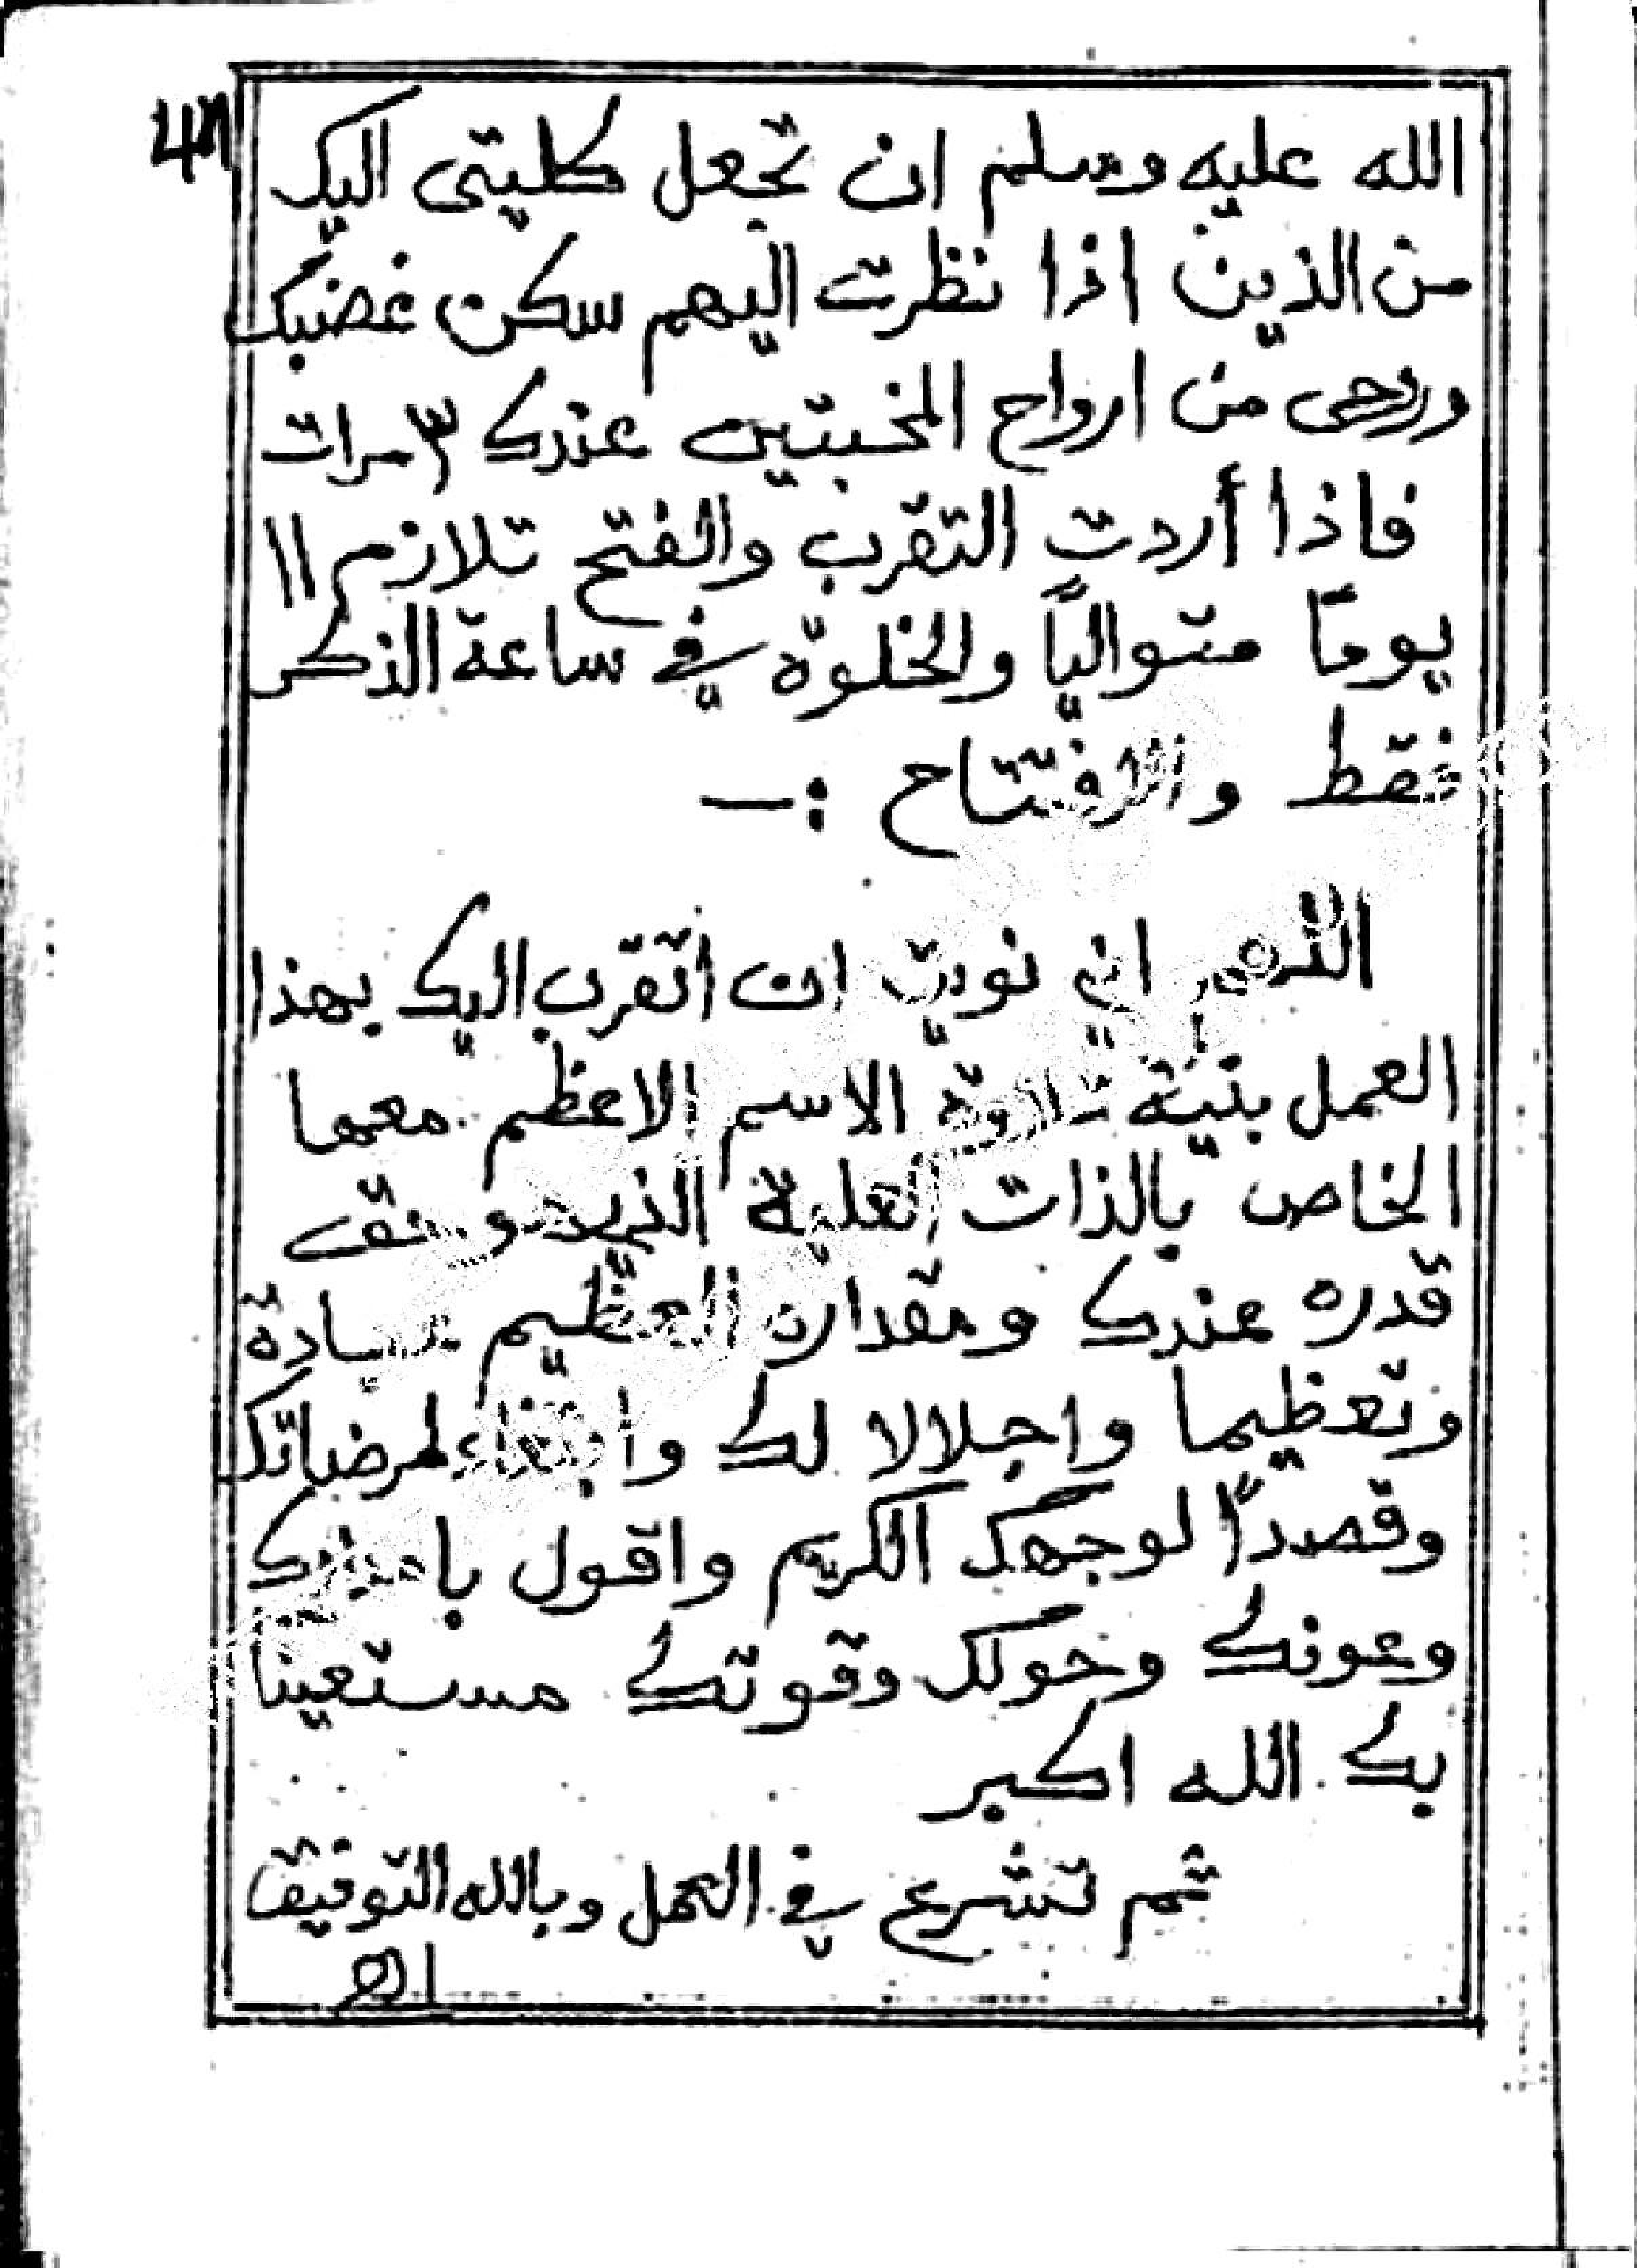 الله عليه وسلم ان تجعل كليتى اليك
من الذين اذا نظرت اليهم سكن غضبك
وروحى من ارواح المخبتين عندك ٣ مرات
فاذا أردت التقرب والفتح تلازم ١١
يوماً متوالياً والخلوة في ساعة الذكر
فقط والافتتاح :ـ
اللهم اني نويت ان اتقرب اليك بهذا
العمل بنية تلاوة الاسم الاعظم معما
الخاص بالذات العلية الذي هو
قدره عندك ومقداره العظيم عبادة
وتعظيما واجلالا لك وابتغاء لمرضاتك
وقصداً لوجهك الكريم واقول
وعونك وحولك وقوتك مستعينا
بك. الله اكبر
ثم تشرع في العمل وبالله التوفيق
اهـ